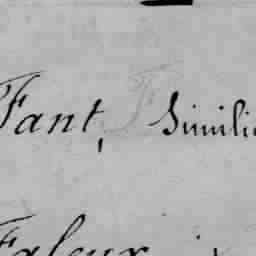 Fant, Simili
Faleur